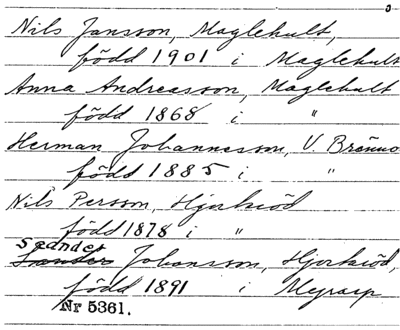 Nils Jansson, Maglehult,
född 1901 i Maglehult
Anna Andreasson, Maglehult
född 1868 i "
Herman Johannesson, V. Brönno
född 1885 i "
Nils Persson, Hjorkröd
född 1878 i "
Seander
Johansson, Hjorkröd,
född 1891 i
Nr 5361.